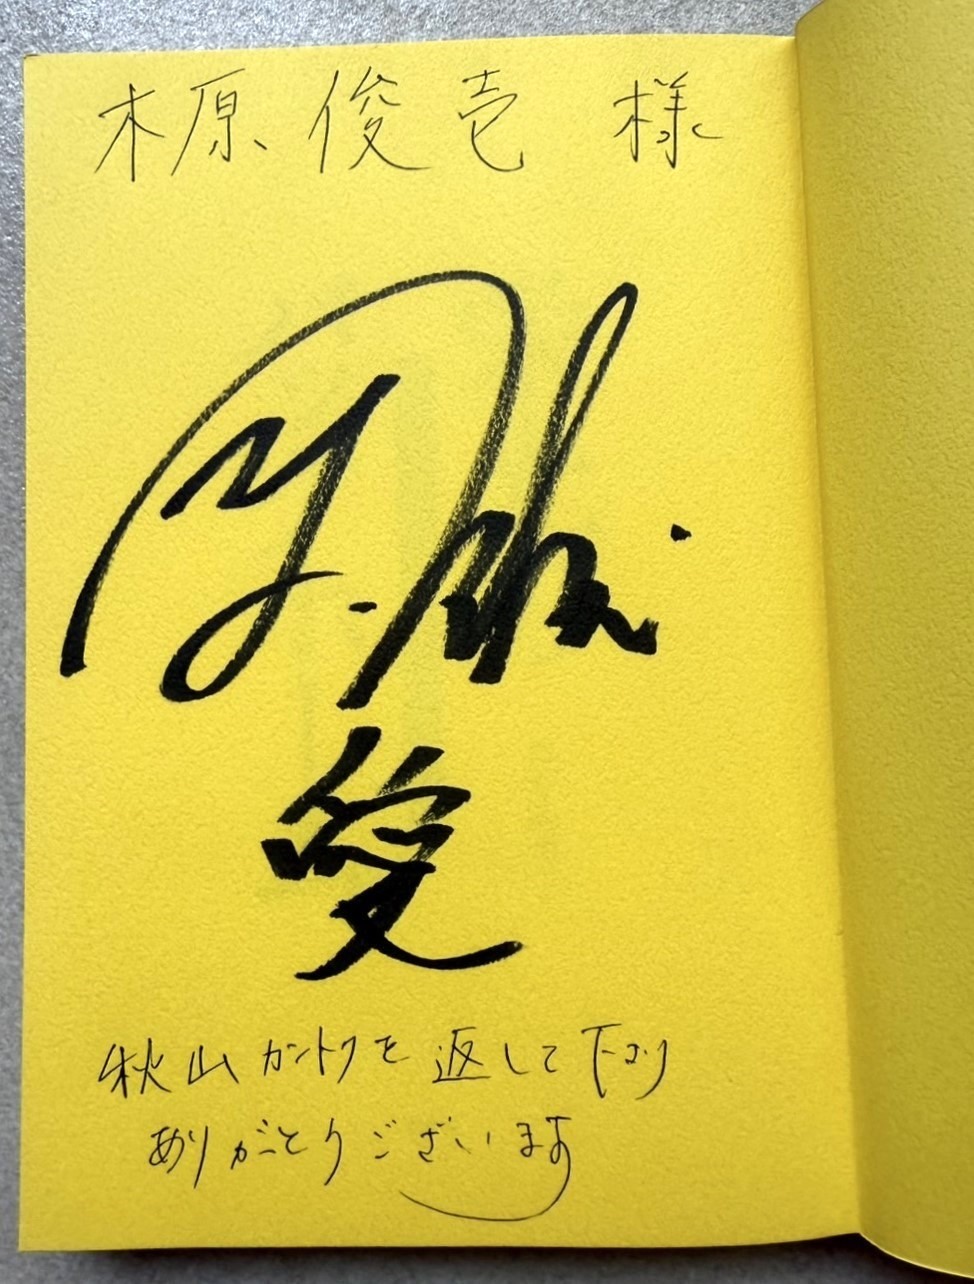 木原 俊壱 様
愛
秋山カントクを返して下さり
ありがとうございます